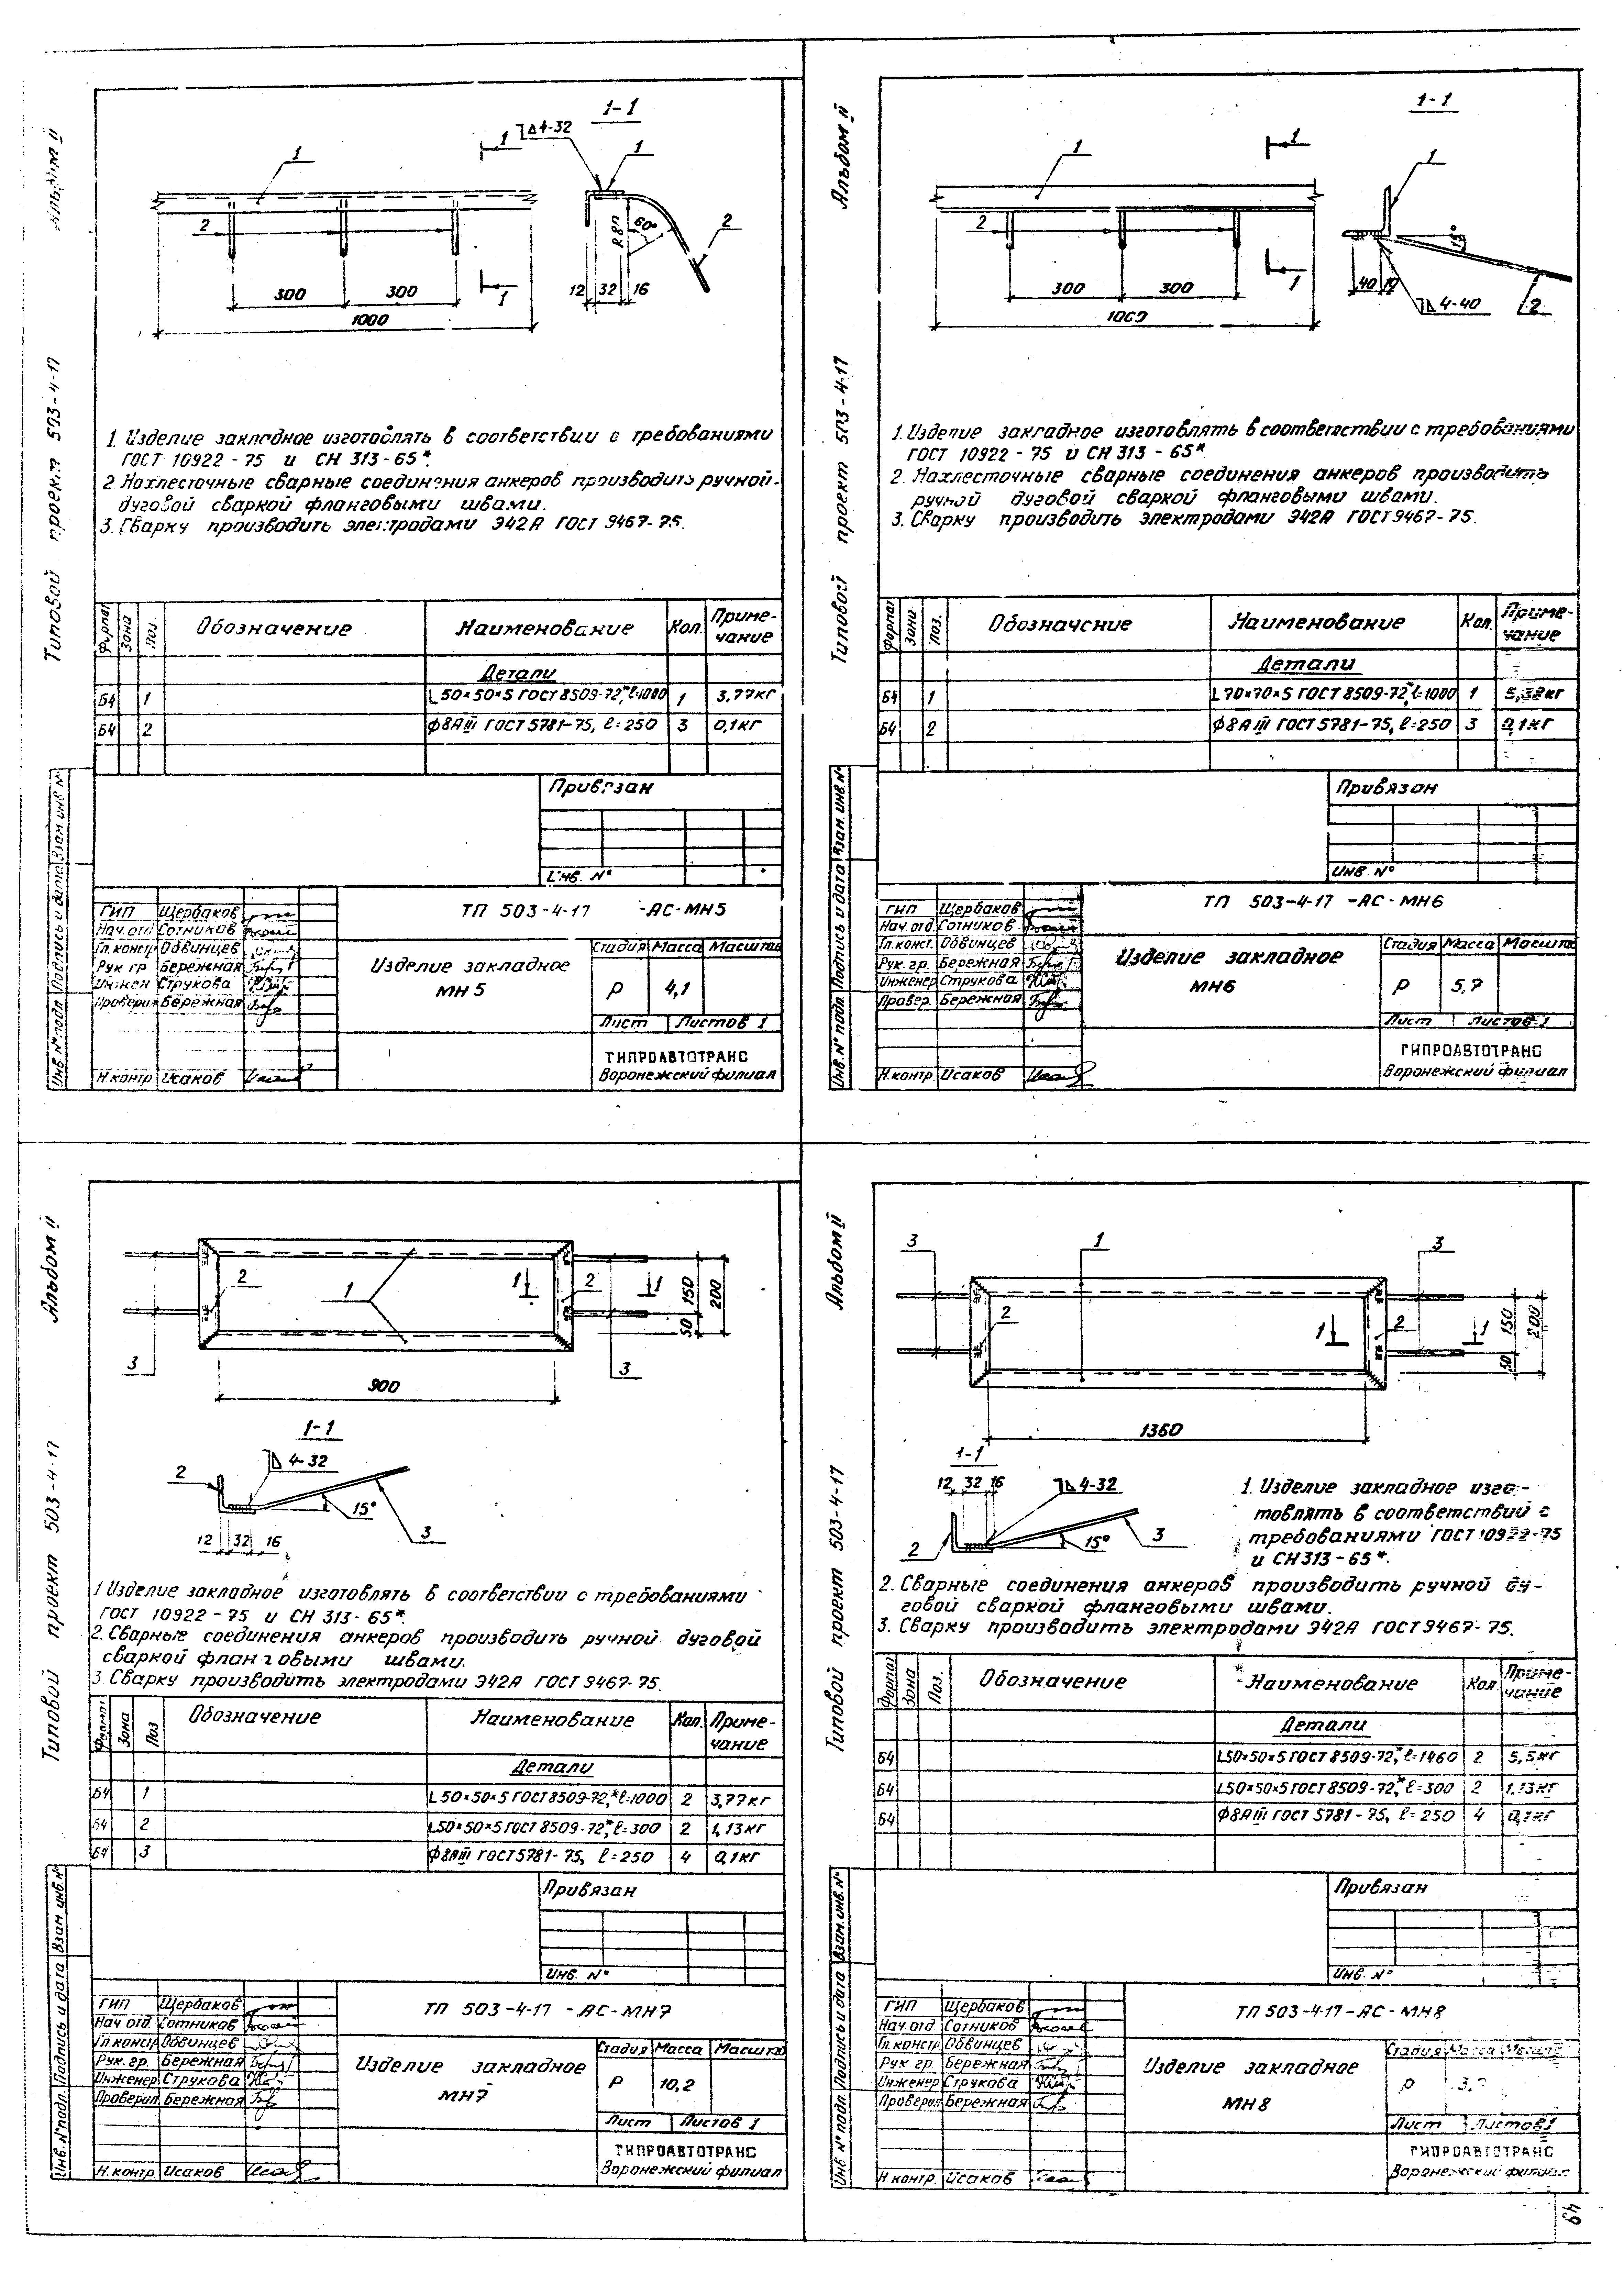 Альбом II
Типовой проект 503-4-17
1-1
4-32
1
1
1
2
2
R80
60°
300
300
1000
12
32
16
1
1. Изделие закладное изготовлять в соответствии с требованиями
ГОСТ 10922-75 и СН 313-65*.
2 Нахлесточные сварные соединения анкеров производить ручной
дуговой сваркой фланговыми швами.
3. Сварку производить электродами Э42А ГОСТ 9467-75.
Формат
Зона
Поз
Обозначение
Наименование
Кол.
Приме-
чание
Детали
Б4 1 L 50×50×5 ГОСТ 8509-72,* ℓ=1000 1 3,77кг
Б4 2 ф8АIII ГОСТ 5781-75, ℓ=250 3 0,1кг
Привязан
Инв. №
Взам инв №
Подпись и дата
Инв. № подл
ГИП Щербаков
Нач. отд Сотников
Гл. констр Обвинцев
Рук гр Бережная
Инжен Струкова
Проверил Бережная
Н.контр Исаков
ТП 503-4-17 -АС-МН5
Изделие закладное
МН5
Стадия Масса Масштаб
Р 4,1
Лист Листов 1
ГИПРОАВТОТРАНС
Воронежский филиал
Альбом II
Типовой проект 503-4-17
1-1
1
1
1
2
15°
300
300
1000
40
4-40
2
1
1. Изделие закладное изготовлять в соответствии с требованиями
ГОСТ 10922-75 и СН 313-65*
2. Нахлесточные сварные соединения анкеров производить
ручной дуговой сваркой фланговыми швами.
3. Сварку производить электродами Э42А ГОСТ 9467-75.
Формат
Зона
Поз.
Обозначение
Наименование
Кол.
Приме-
чание
Детали
Б4 1 L 70×70×5 ГОСТ 8509-72,* ℓ=1000 1 5,38кг
Б4 2 ф8АIII ГОСТ 5781-75, ℓ=250 3 0,1кг
Привязан
Инв. №
Взам. инв. №
Подпись и дата
Инв. № подл
ГИП Щербаков
Нач. отд. Сотников
Гл. конст. Обвинцев
Рук. гр. Бережная
Инженер Струкова
Провер. Бережная
Н.контр. Исаков
ТП 503-4-17 -АС-МН6
Изделие закладное
МН6
Стадия Масса Масштаб
Р 5,7
Лист Листов 1
ГИПРОАВТОТРАНС
Воронежский филиал
Альбом II
Типовой проект 503-4-17
2
1
1
2
1
150
200
50
3
3
900
1-1
2
4-32
15°
3
12
32
16
1 Изделие закладное изготовлять в соответствии с требованиями
ГОСТ 10922-75 и СН 313-65*
2. Сварные соединения анкеров производить ручной дуговой
сваркой фланговыми швами.
3. Сварку производить электродами Э42А ГОСТ 9467-75.
Формат
Зона
Поз
Обозначение
Наименование
Кол.
Приме-
чание
Детали
Б4 1 L 50×50×5 ГОСТ 8509-72,* ℓ=1000 2 3,77кг
Б4 2 L50×50×5 ГОСТ 8509-72,* ℓ=300 2 1,13кг
Б4 3 ф8АIII ГОСТ 5781-75, ℓ=250 4 0,1кг
Привязан
Инв. №
Взам. инв. №
Подпись и дата
Инв. № подл.
ГИП Щербаков
Нач. отд. Сотников
Гл. констр Обвинцев
Рук. гр. Бережная
Инженер Струкова
Проверил Бережная
Н.контр Исаков
ТП 503-4-17 -АС-МН7
Изделие закладное
МН7
Стадия Масса Масштаб
Р 10,2
Лист Листов 1
ГИПРОАВТОТРАНС
Воронежский филиал
Альбом II
Типовой проект 503-4-17
3
1
3
2
1
2
1
150
200
50
1360
1-1
12
32
16
4-32
2
15°
3
1. Изделие закладное изго-
товлять в соответствий с
требованиями ГОСТ 10922-75
и СН313-65*.
2. Сварные соединения анкеров производить ручной ду-
говой сваркой фланговыми швами.
3. Сварку производить электродами Э42А ГОСТ 9467-75.
Формат
Зона
Поз.
Обозначение
Наименование
Кол.
Приме-
чание
Детали
Б4 L50×50×5 ГОСТ 8509-72,* ℓ=1460 2 5,5кг
Б4 L50×50×5 ГОСТ 8509-72,* ℓ=300 2 1,13кг
Б4 ф8АIII ГОСТ 5781-75, ℓ=250 4 0,1кг
Привязан
Инв. №
Взам. инв. №
Подпись и дата
Инв. № подл.
ГИП Щербаков
Нач. отд Сотников
Гл. констр Обвинцев
Рук гр. Бережная
Инженер Струкова
Проверил Бережная
Н.контр. Исаков
ТП 503-4-17-АС-МН8
Изделие закладное
МН8
Стадия Масса Масштаб
Р
Лист Листов 1
ГИПРОАВТОТРАНС
Воронежский филиал
49